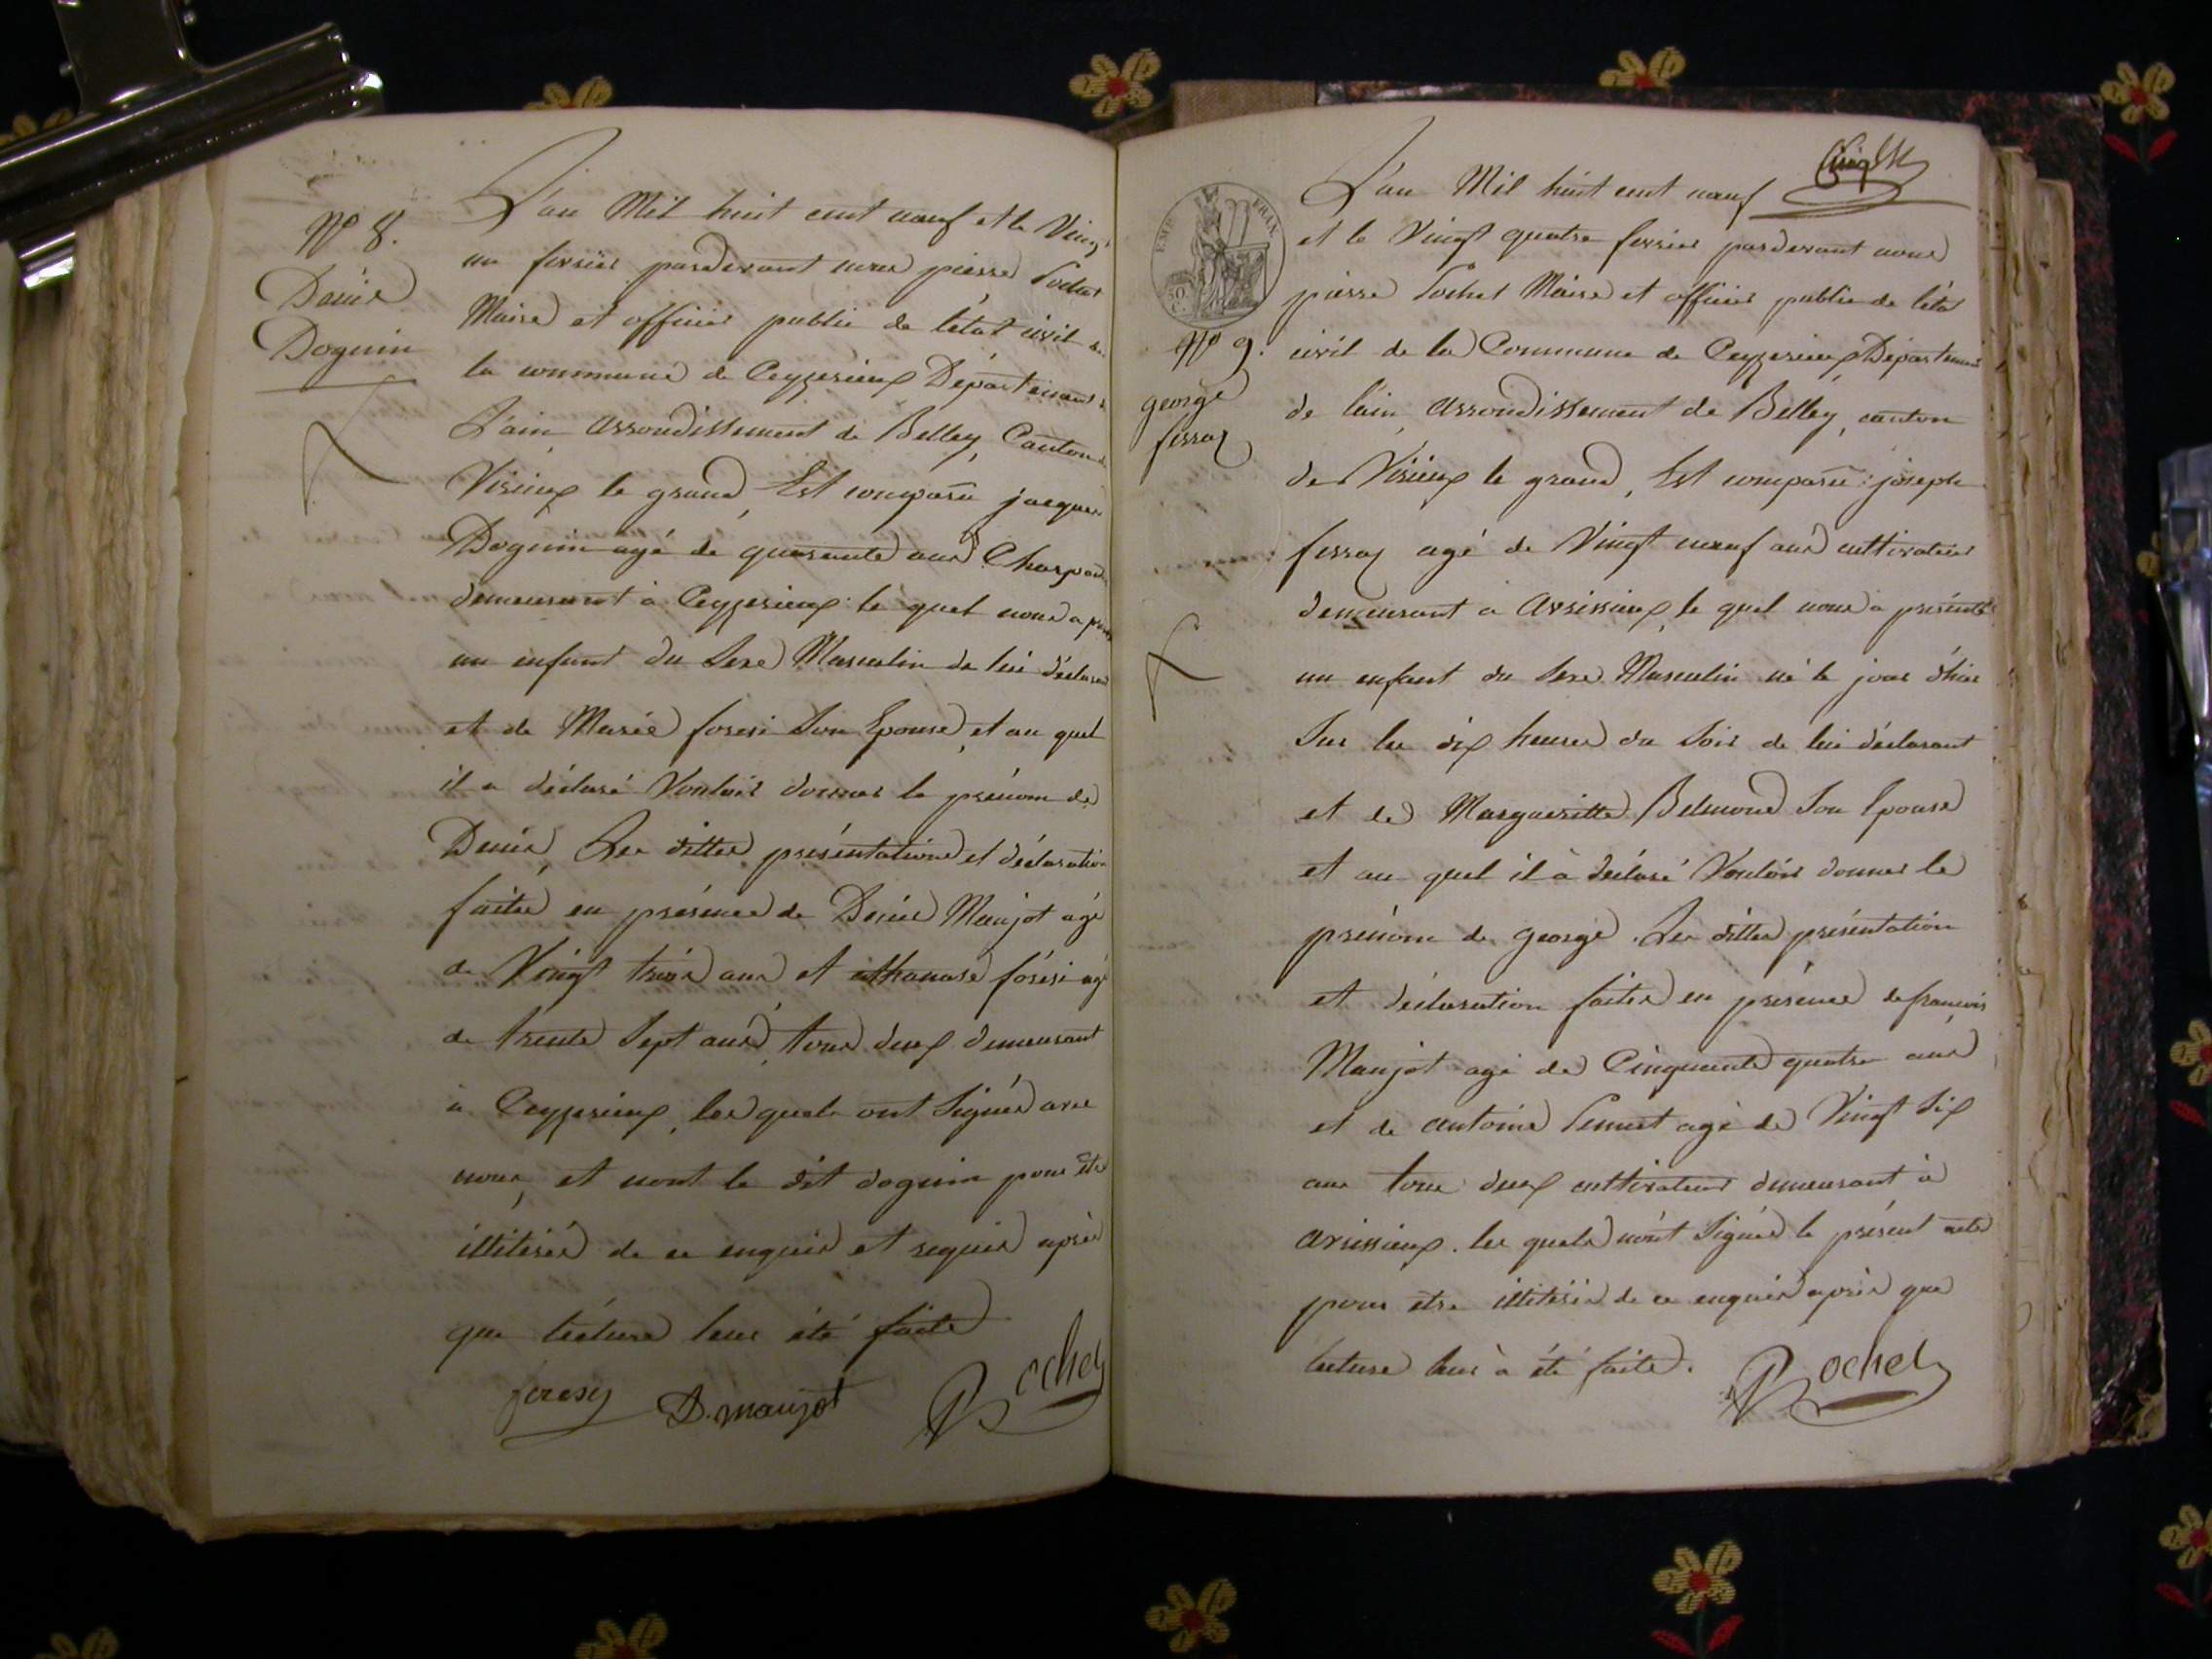 Nº 8.
Denis
Doguin
L'an Mil huit cent neuf et le Vingt
un fevrier pardevant nous pierre Pochet
Maire et officier public de l'état civil de
la commune de Ceyzerieux Département de
L'ain arrondissement de Belley, Canton de
Virieux le grand, Est comparu jacques
Doguin agé de quarante ans Charpen
demeurant à Ceyzerieux le quel nous a
un enfant du Sexe Masculin de lui déclarant
et de Marie foresi Son Epouse, et au quel
il a déclaré Vouloir donner le prénom de
Denis, Les dittes présentations et déclaration
faites en présence de Denis Maujot agé
de Vingt trois ans et athanase forési agé
de trente Sept ans, tous deux demeurant
à Ceyzerieux, les quels ont Signés avec
nous, et nont le dit doguin pour être
illitérés de ce enquis et requis après
que lécture leur été faite
foresy D. maujot Pochet
EMP. FRAN.
Nº 9.
george
ferraz
L'an Mil huit cent neuf
et le Vingt quatre fevrier pardevant nous
pierre Pochet Maire et officier public de l'état
civil de la Commune de Ceyzerieux Département
de l'ain, arrondissement de Belley, canton
de Virieux le grand, Est comparu : joseph
ferraz agé de Vingt neuf ans cultivateur
demeurant a arvissieux, le quel nous a présenté
un enfant du Sexe Masculin né le jour d'hier
Sur les dix heures du Soir de lui déclarant
et de Margueritte Belmond Son Epouse
et au quel il à déclaré Vouloir donner le
prénom de george. Les dittes présentation
et déclaration faites en présence de françois
Maujot agé de Cinquante quatre ans
et de antoine agé de Vingt Six
ans tous deux cultivateurs demeurant à
arvissieux. les quels n'ont Signés le présent acte
pour etre illitérés de ce enquis après que
lecture leur à été faite.
Pochet